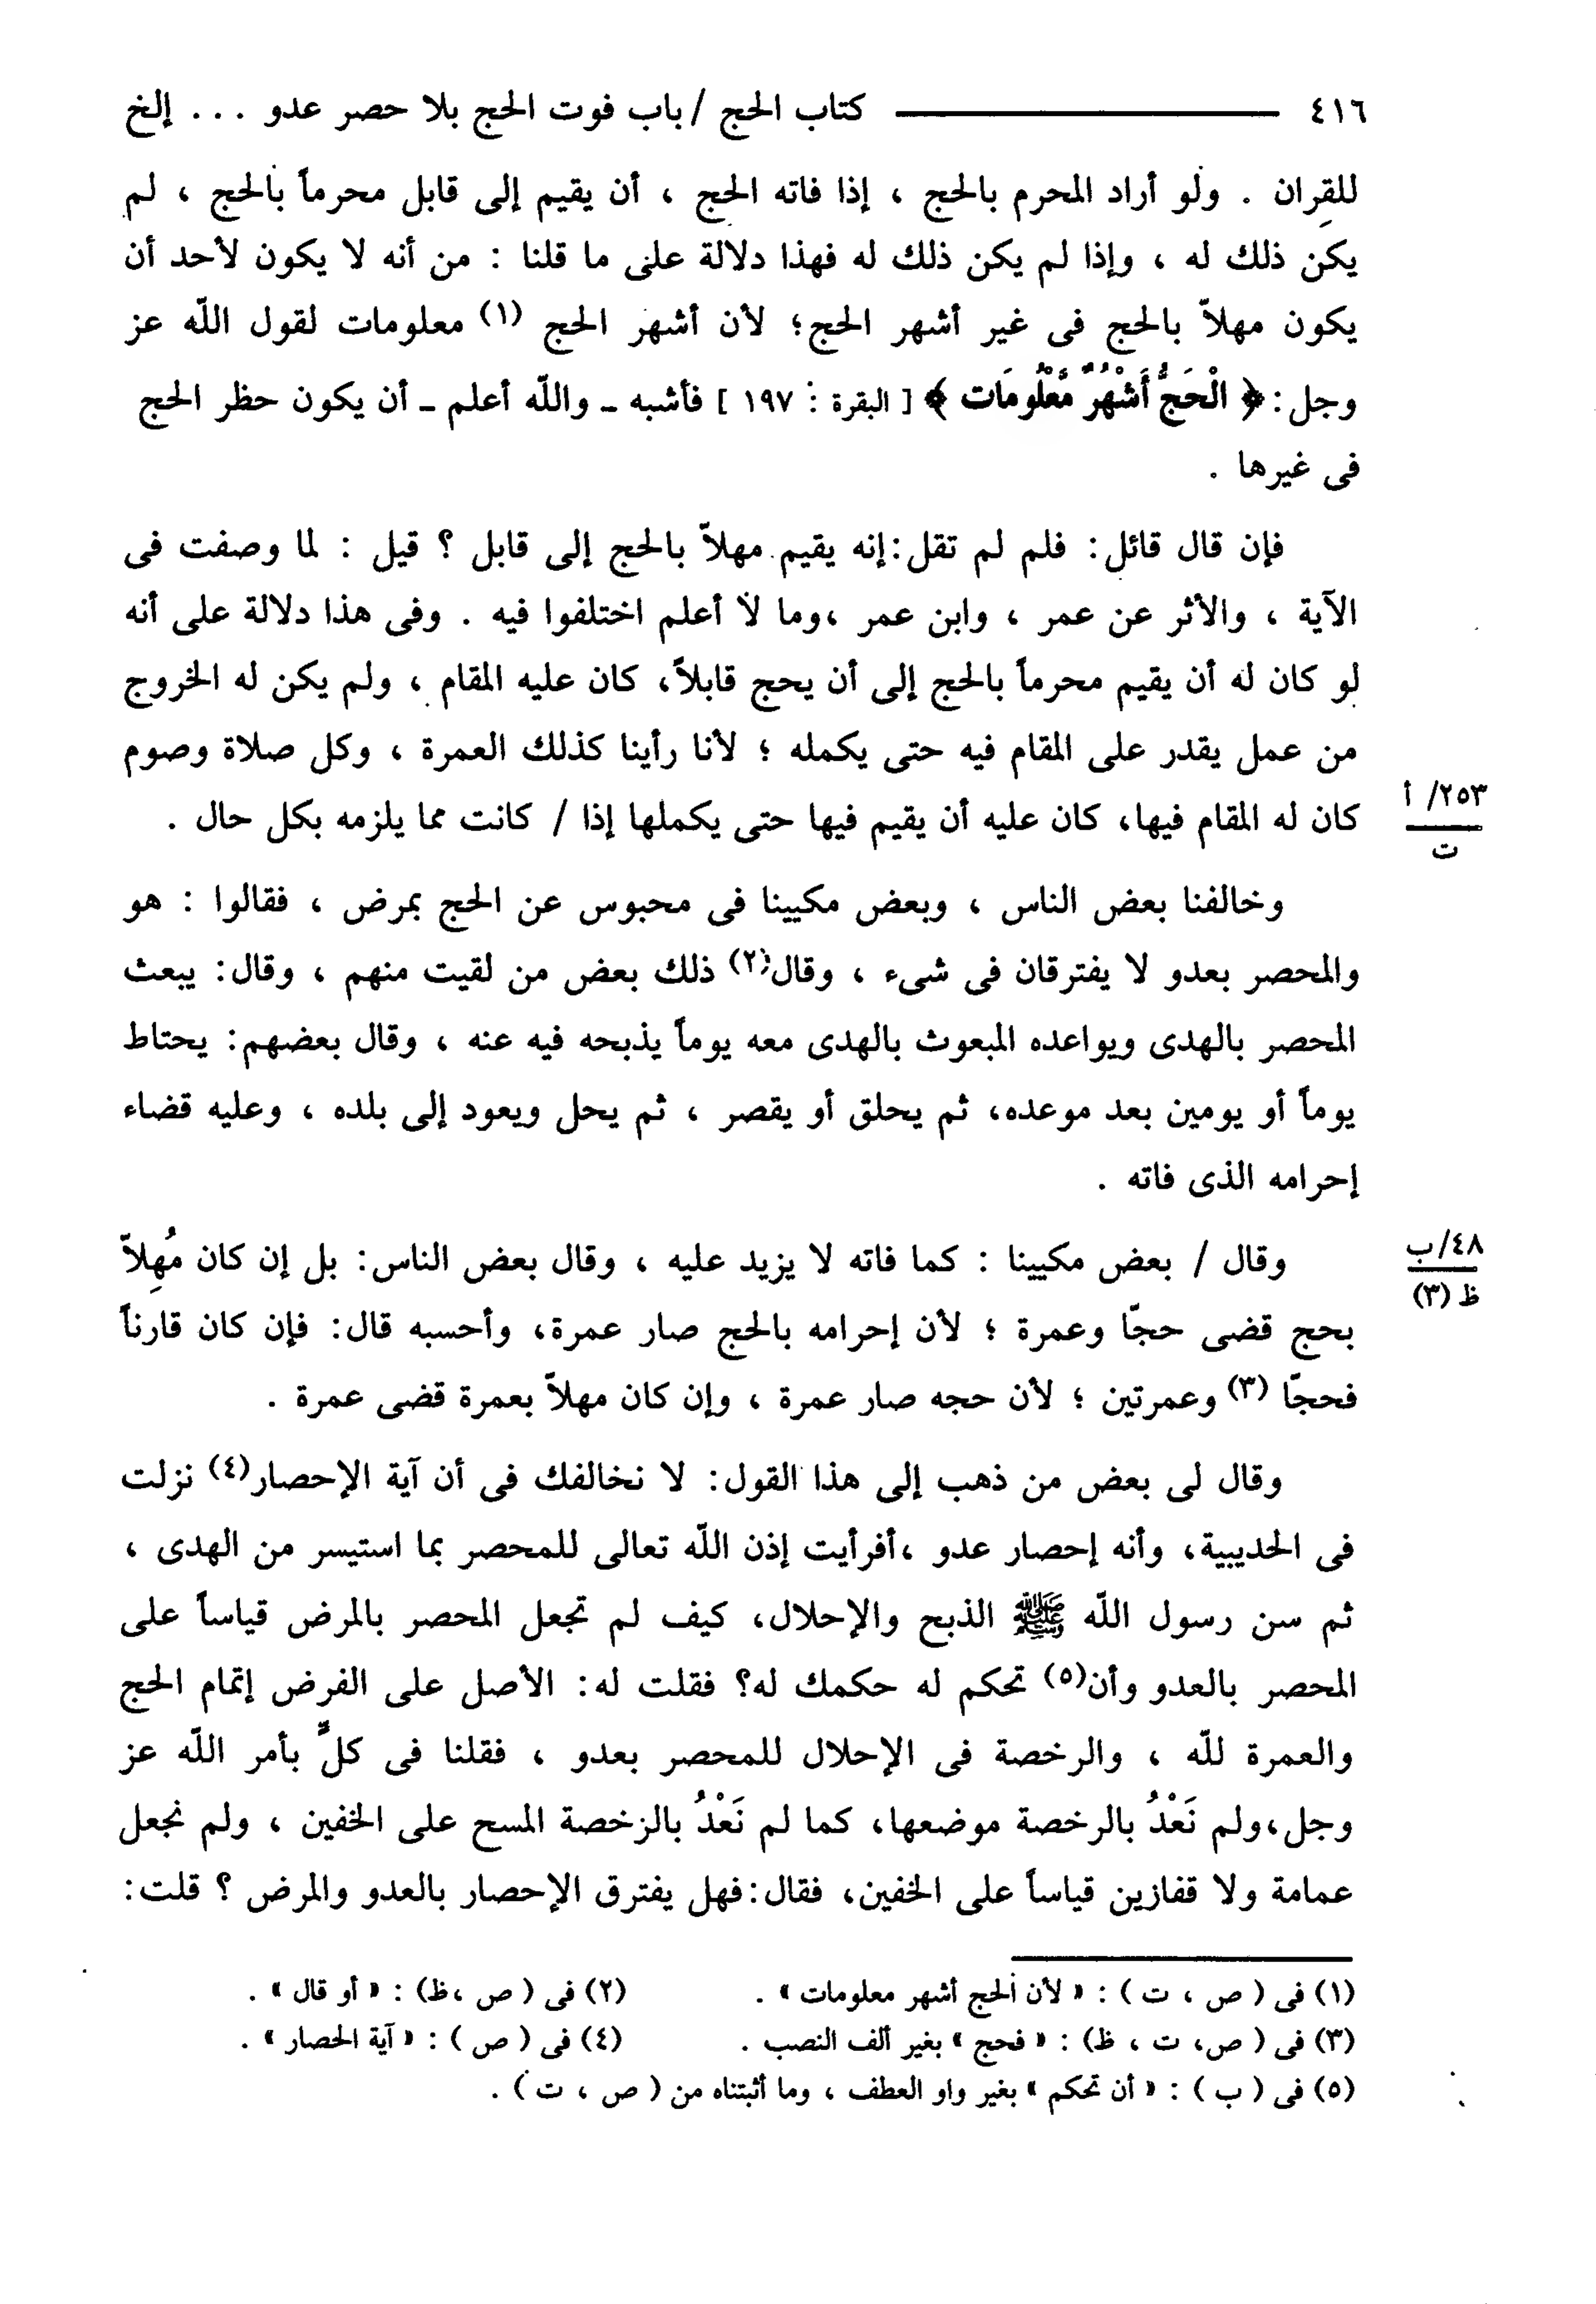 ٤١٦ ــــــــــــــــ كتاب الحج / باب فوت الحج بلا حصر عدو ... إلخ
للقِران . ولو أراد المحرم بالحج ، إذا فاته الحج ، أن يقيم إلى قابل محرماً بالحج ، لم
يكن ذلك له ، وإذا لم يكن ذلك له فهذا دلالة على ما قلنا : من أنه لا يكون لأحد أن
يكون مهلاً بالحج فى غير أشهر الحج؛ لأن أشهر الحج (١) معلومات لقول الله عز
وجل: ﴿ الْحَجُّ أَشْهُرٌ مَّعْلُومَات ﴾ [ البقرة : ١٩٧ ] فأشبه ـ والله أعلم ـ أن يكون حظر الحج
فى غيرها .
فإن قال قائل: فلم لم تقل: إنه يقيم مهلاً بالحج إلى قابل ؟ قيل : لما وصفت فى
الآية ، والأثر عن عمر ، وابن عمر ،وما لا أعلم اختلفوا فيه . وفى هذا دلالة على أنه
لو كان له أن يقيم محرماً بالحج إلى أن يحج قابلاً، كان عليه المقام ، ولم يكن له الخروج
من عمل يقدر على المقام فيه حتى يكمله ؛ لأنا رأينا كذلك العمرة ، وكل صلاة وصوم
كان له المقام فيها، كان عليه أن يقيم فيها حتى يكملها إذا / كانت مما يلزمه بكل حال .
٢٥٣/ أ
ت
وخالفنا بعض الناس ، وبعض مكيينا فى محبوس عن الحج بمرض ، فقالوا : هو
والمحصر بعدو لا يفترقان فى شىء ، وقال(٢) ذلك بعض من لقيت منهم ، وقال: يبعث
المحصر بالهدى ويواعده المبعوث بالهدى معه يوماً يذبحه فيه عنه ، وقال بعضهم: يحتاط
يوماً أو يومين بعد موعده، ثم يحلق أو يقصر ، ثم يحل ويعود إلى بلده ، وعليه قضاء
إحرامه الذى فاته .
وقال / بعض مكيينا : كما فاته لا يزيد عليه ، وقال بعض الناس: بل إن كان مُهِلاً
٤٨/ب
ظ (٣)
بحج قضى حجّا وعمرة ؛ لأن إحرامه بالحج صار عمرة، وأحسبه قال: فإن كان قارناً
فحجّا (٣) وعمرتين ؛ لأن حجه صار عمرة ، وإن كان مهلاً بعمرة قضى عمرة .
وقال لى بعض من ذهب إلى هذا القول: لا نخالفك فى أن آية الإحصار(٤) نزلت
فى الحديبية، وأنه إحصار عدو ،أفرأيت إذن الله تعالى للمحصر بما استيسر من الهدى ،
ثم سن رسول الله ﷺ الذبح والإحلال، كيف لم تجعل المحصر بالمرض قياساً على
المحصر بالعدو وأن(٥) تحكم له حكمك له؟ فقلت له: الأصل على الفرض إتمام الحج
والعمرة لله ، والرخصة فى الإحلال للمحصر بعدو ، فقلنا فى كلٍّ بأمر الله عز
وجل،ولم نَعْدُ بالرخصة موضعها، كما لم نَعْدُ بالرخصة المسح على الخفين ، ولم نجعل
عمامة ولا قفازين قياساً على الخفين، فقال: فهل يفترق الإحصار بالعدو والمرض ؟ قلت:
(١) فى ( ص ، ت ) : « لأن الحج أشهر معلومات » . (٢) فى ( ص ،ظ) : « أو قال » .
(٣) فى ( ص، ت ، ظ) : « فحج » بغير ألف النصب . (٤) فى ( ص ) : « آية الحصار » .
(٥) فى ( ب ) : « أن تحكم » بغير واو العطف ، وما أثبتناه من ( ص ، ت ) .